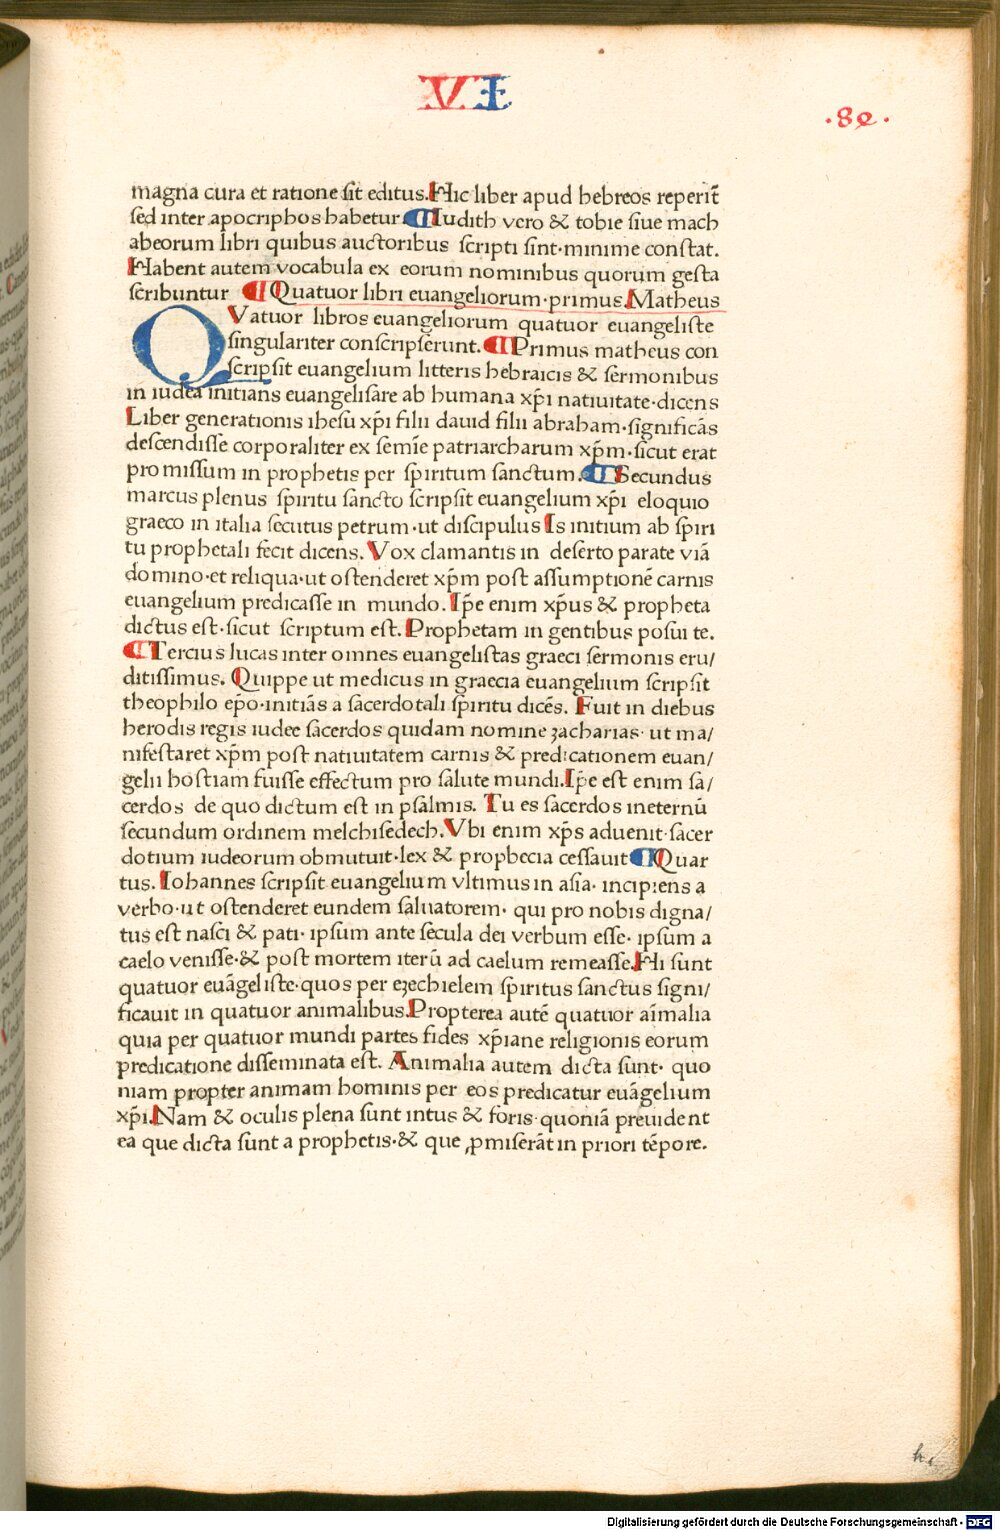 VI
.8e.
magna cura et ratione ſit editus. Hic liber apud hebreos reperiť
ſed inter apocriphos habetur ¶ Iudith vero & tobie ſiue mach
abeorum libri quibus auctoribus ſcripti ſint·minime conſtat.
Habent autem vocabula ex eorum nominibus quorum geſta
ſcribuntur ¶ Quatuor libri euangeliorum·primus Matheus
QVatuor libros euangeliorum quatuor euangeliſte
ſingulariter conſcripſerunt. ¶ Primus matheus con
ſcripſit euangelium litteris hebraicis & ſermonibus
in iudea initians euangeliſare ab humana xp̄i natiuitate·dicens
Liber generationis iheſu xp̄i filii dauid filii abraham·ſignificās
deſcendiſſe corporaliter ex ſemīe patriarcharum xp̄m·ſicut erat
promiſſum in prophetis per ſpiritum ſanctum. ¶ Secundus
marcus plenus ſpiritu ſancto ſcripſit euangelium xp̄i eloquio
graeco in italia ſecutus petrum·ut diſcipulus Is initium ab ſpiri
tu prophetali fecit dicens. Vox clamantis in deſerto parate viā
domino·et reliqua·ut oſtenderet xp̄m poſt aſſumptionē carnis
euangelium predicaſſe in mundo. Ip̄e enim xp̄us & propheta
dictus eſt·ſicut ſcriptum eſt. Prophetam in gentibus poſui te.
¶ Tercius lucas inter omnes euangeliſtas graeci ſermonis eru/
ditiſſimus. Quippe ut medicus in graecia euangelium ſcripſit
theophilo ep̄o·initiās a ſacerdotali ſpiritu dicēs. Fuit in diebus
herodis regis iudee ſacerdos quidam nomine zacharias· ut ma/
nifeſtaret xp̄m poſt natiuitatem carnis & predicationem euan/
gelii hoſtiam fuiſſe effectum pro ſalute mundi. Ip̄e eſt enim ſa/
cerdos de quo dictum eſt in pſalmis. Tu es ſacerdos ineternū
ſecundum ordinem melchiſedech. Vbi enim xp̄s aduenit·ſacer
dotium iudeorum obmutuit·lex & prophecia ceſſauit ¶ Quar
tus. Iohannes ſcripſit euangelium vltimus in aſia· incipiens a
verbo·ut oſtenderet eundem ſaluatorem· qui pro nobis digna/
tus eſt naſci & pati· ipſum ante ſecula dei verbum eſſe· ipſum a
caelo veniſſe·& poſt mortem iterū ad caelum remeaſſe. Hi ſunt
quatuor euāgeliſte·quos per ezechielem ſpiritus ſanctus ſigni/
ficauit in quatuor animalibus. Propterea autē quatuor aīmalia
quia per quatuor mundi partes fides xp̄iane religionis eorum
predicatione diſſeminata eſt. Animalia autem dicta ſunt· quo
niam propter animam hominis per eos predicatur euāgelium
xp̄i. Nam & oculis plena ſunt intus & foris·quoniā preuident
ea que dicta ſunt a prophetis·& que ꝓmiſerāt in priori tēpore.
Digitalisierung gefördert durch die Deutsche Forschungsgemeinschaft - DFG